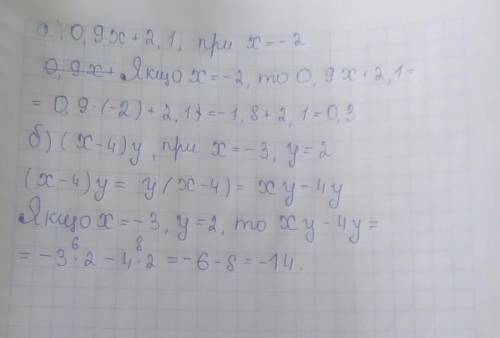 а) 0,9x+2,1, при x=-2
0,9x+ Якщо x=-2, то 0,9x+2,1=
= 0,9·(-2)+2,1=-1,8+2,1=0,3
б) (x-4)y, при x=-3, y=2
(x-4)y= y(x-4)= xy-4y
Якщо x=-3, y=2, то xy-4y=
6 8
= -3·2 -4·2 =-6-8=-14.